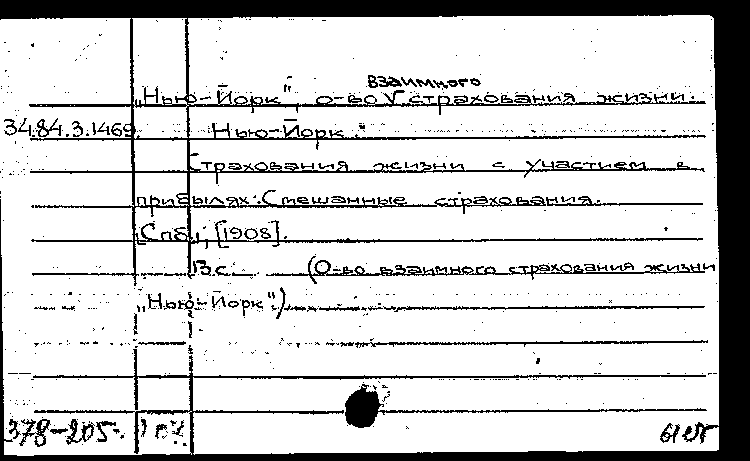 взаимного
„Нью-Йорк", о-во V страхования жизни.
34.84.3.1469 Нью-Йорк."
Страхования жизни с участием в
прибылях: Смешанные страхования.
Спб., [1908].
13 с. (О-во взаимного страхования жизни
„Нью-Йорк".)
378-205